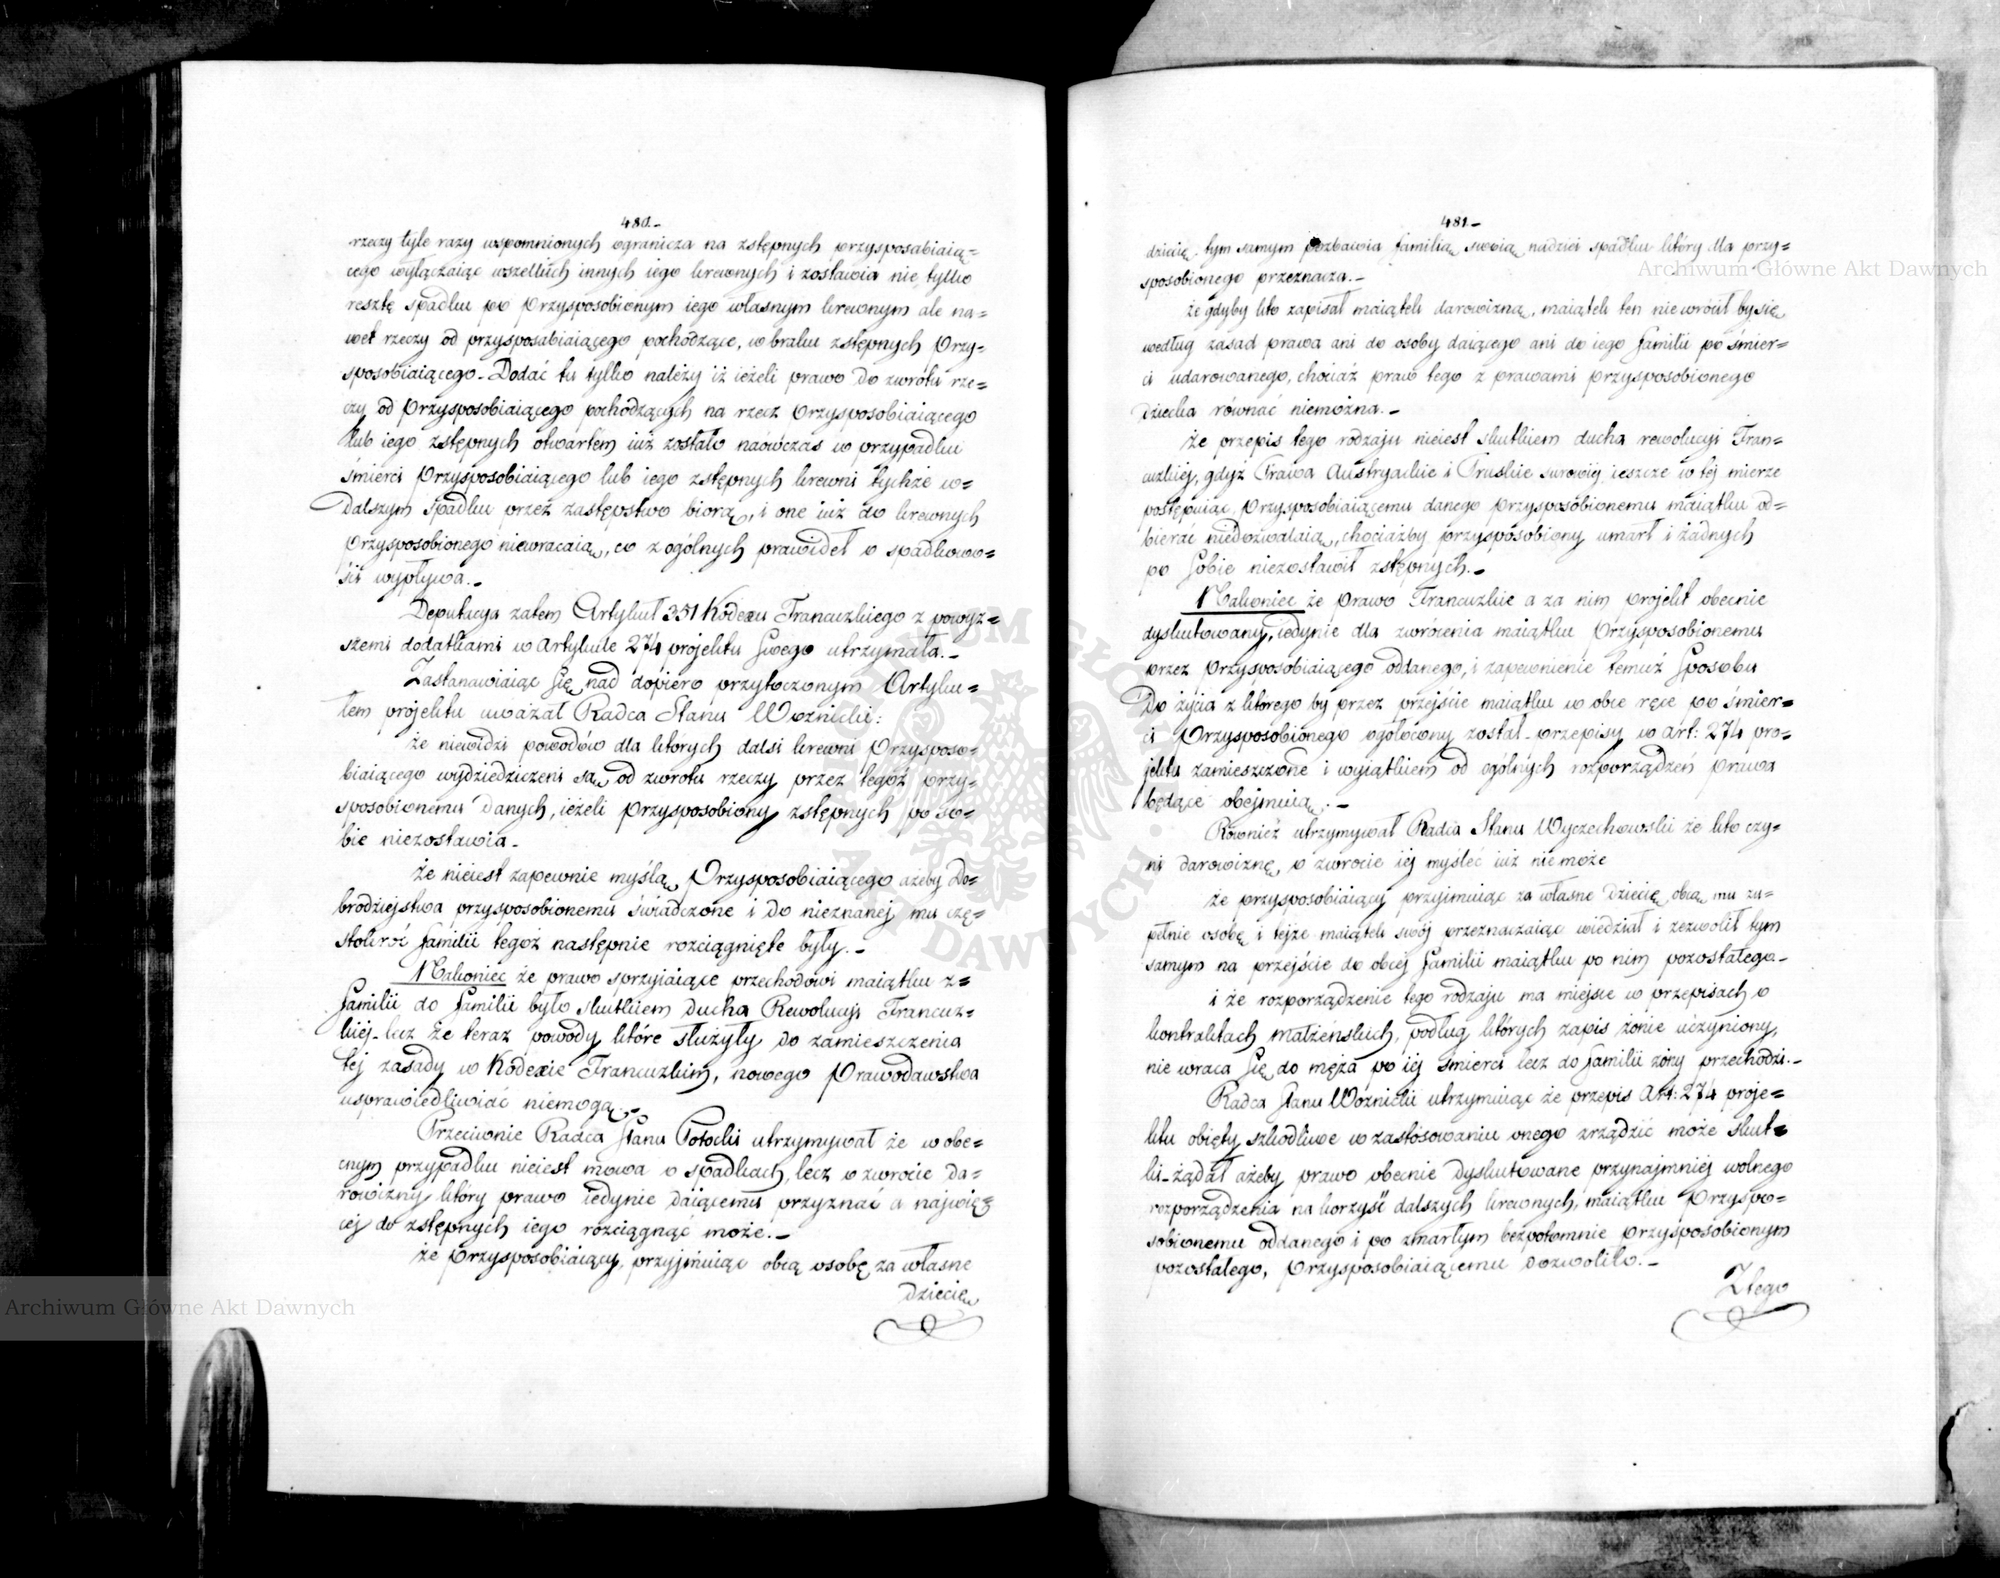 480.
rzeczy tyle razy wspomnionych ogranicza na zstępnych przysposabiaią=
cego wyłączaiąc wszelkich innych iego krewnych i zostawia nie tylko
resztę spadku po Przysposobionym iego własnym krewnym ale na=
wet rzeczy od przysposabiaiącego pochodzące, w braku zstępnych Przy=
sposobiaiącego. Dodać tu tylko należy iż ieżeli prawo do zwrotu rze=
czy od Przysposobiaiącego pochodzących na rzecz Przysposobiaiącego
lub iego zstępnych otwartem iuż zostało naówczas w przypadku
śmierci Przysposobiaiącego lub iego zstępnych krewni tychże w=
dalszym spadku przez zastępstwo biorą, i one iuż do krewnych
Przysposobionego niewracaią, co z ogólnych prawideł o spadkowo=
ści wypływa.
Deputacya zatem Artykuł 351 Kodexu Francuzkiego z powyż=
szemi dodatkami w Artykule 274 projektu swego utrzymała.
Zastanawiaiąc się nad dopiero przytoczonym Artyku=
łem projektu uważał Radca Stanu Woznicki:
że niewidzi powodów dla których dalsi krewni Przysposo=
biaiącego wydziedziczeni są od zwrotu rzeczy przez tegoż przy=
sposobionemu danych, ieżeli Przysposobiony zstępnych po so=
bie niezostawia.
że nieiest zapewnie myślą Przysposobiaiącego ażeby do=
brodziejstwa przysposobionemu świadczone i do nieznanej mu czę=
stokroć familii tegoż następnie rozciągnięte były.
Nakoniec że prawo sprzyiaiące przechodowi maiątku z=
familii do familii było skutkiem ducha Rewolucyi Francuz=
kiéj. lecz że teraz powody które służyły do zamieszczenia
téj zasady w Kodexie Francuzkim, nowego Prawodawstwa
usprawiedliwiać niemogą.
Przeciwnie Radca Stanu Potocki utrzymywał że w obe=
cnym przypadku nieiest mowa o spadkach, lecz o zwrocie da=
rowizny który prawo iedynie daiącemu przyznać a najwię=
céj do zstępnych iego rozciągnąć może.
że Przysposobiaiący, przyjmuiąc obcą osobę za własne
dziecię
481.
dziecię, tym samym pozbawia familią swoią nadziei spadku który dla przy=
sposobionego przeznacza.
że gdyby kto zapisał maiątek darowizną, maiątek ten niewrócił by się
według zasad prawa ani do osoby daiącego ani do iego familii po śmier=
ci udarowanego, chociaż praw tego z prawami przysposobionego
dziecka równać niemożna.
że przepis tego rodzaju nieiest skutkiem ducha rewolucyi Fran=
cuzkiéj, gdyż Prawa Austryackie i Pruskie surowiéj ieszcze w téj mierze
postępuiąc, Przysposobiaiącemu danego przysposobionemu maiątku od=
bierać niedozwalaią, chociażby przysposobiony umarł i żadnych
po sobie niezostawił zstępnych.
Nakoniec że prawo Francuzkie a za nim projekt obecnie
dyskutowany, iedynie dla zwrócenia maiątku Przysposobionemu
przez Przysposobiaiącego oddanego, i zapewnienie temuż sposobu
do życia z którego by przez przejście maiątku w obce ręce po śmier=
ci Przysposobionego ogołocony został. przepisy w art: 274 pro=
jektu zamieszczone i wyiątkiem od ogólnych rozporządzeń prawa
będące obejmuią.
Również utrzymywał Radca Stanu Wyczechowski że kto czy=
ni darowiznę, o zwrocie iéj myśleć iuż niemoże
że przysposobiaiący przyjmuiąc za własne dziecię obcą mu zu=
pełnie osobę i tejże maiątek swój przeznaczaiąc wiedział i zezwolił tym
samym na przejście do obcéj familii maiątku po nim pozostałego.
i że rozporządzenie tego rodzaju ma miejsce w przepisach o
kontraktach małżeńskich, podług których zapis żonie uczyniony,
nie wraca się do męża po iéj śmierci lecz do familii żony przechodzi.
Radca Stanu Woznicki utrzymuiąc że przepis Art: 274 proje=
ktu obięty szkodliwe w zastosowaniu onego zrządzić może skut=
ki. żądał ażeby prawo obecnie dyskutowane przynajmniéj wolnego
rozporządzenia na korzyść dalszych krewnych, maiątku Przyspo=
sobionemu oddanego i po zmarłym bezpotomnie przysposobionym
pozostałego, Przysposobiaiącemu dozwoliło.
Z tego
Archiwum Główne Akt Dawnych
Archiwum Główne Akt Dawnych
ARCHIWUM GŁÓWNE AKT DAWNYCH